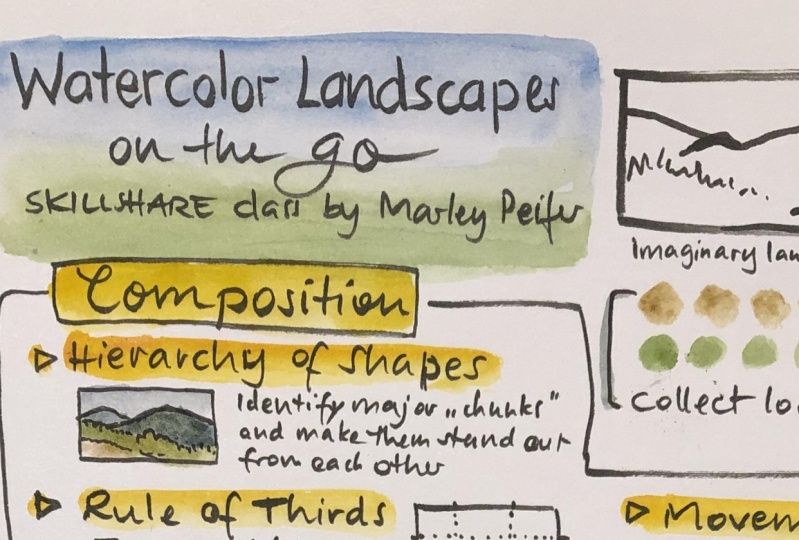 Watercolor Landscapes
on the go
SKILLSHARE class by Marley Peifer
Composition
Hierarchy of shapes
Identify major „chunks"
and make them stand out
from each other
Rule of Thirds
Imaginary
collect